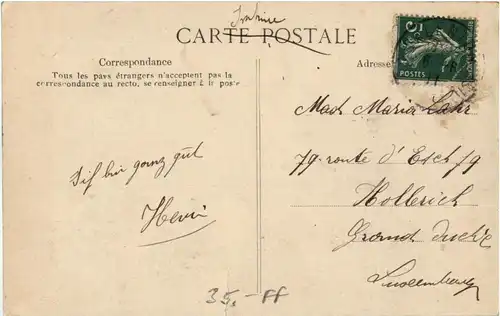 Imprimé
CARTE POSTALE
Correspondance
Tous les pays étrangers n'acceptent pas la
correspondance au recto, se renseigner à la poste
Adresse
5c
POSTES
Mad Maria Lahr
79 route d'Esch 79
Hollerich
Grand duché
Luxembourg
bin ganz gut
Henri
35,- FF